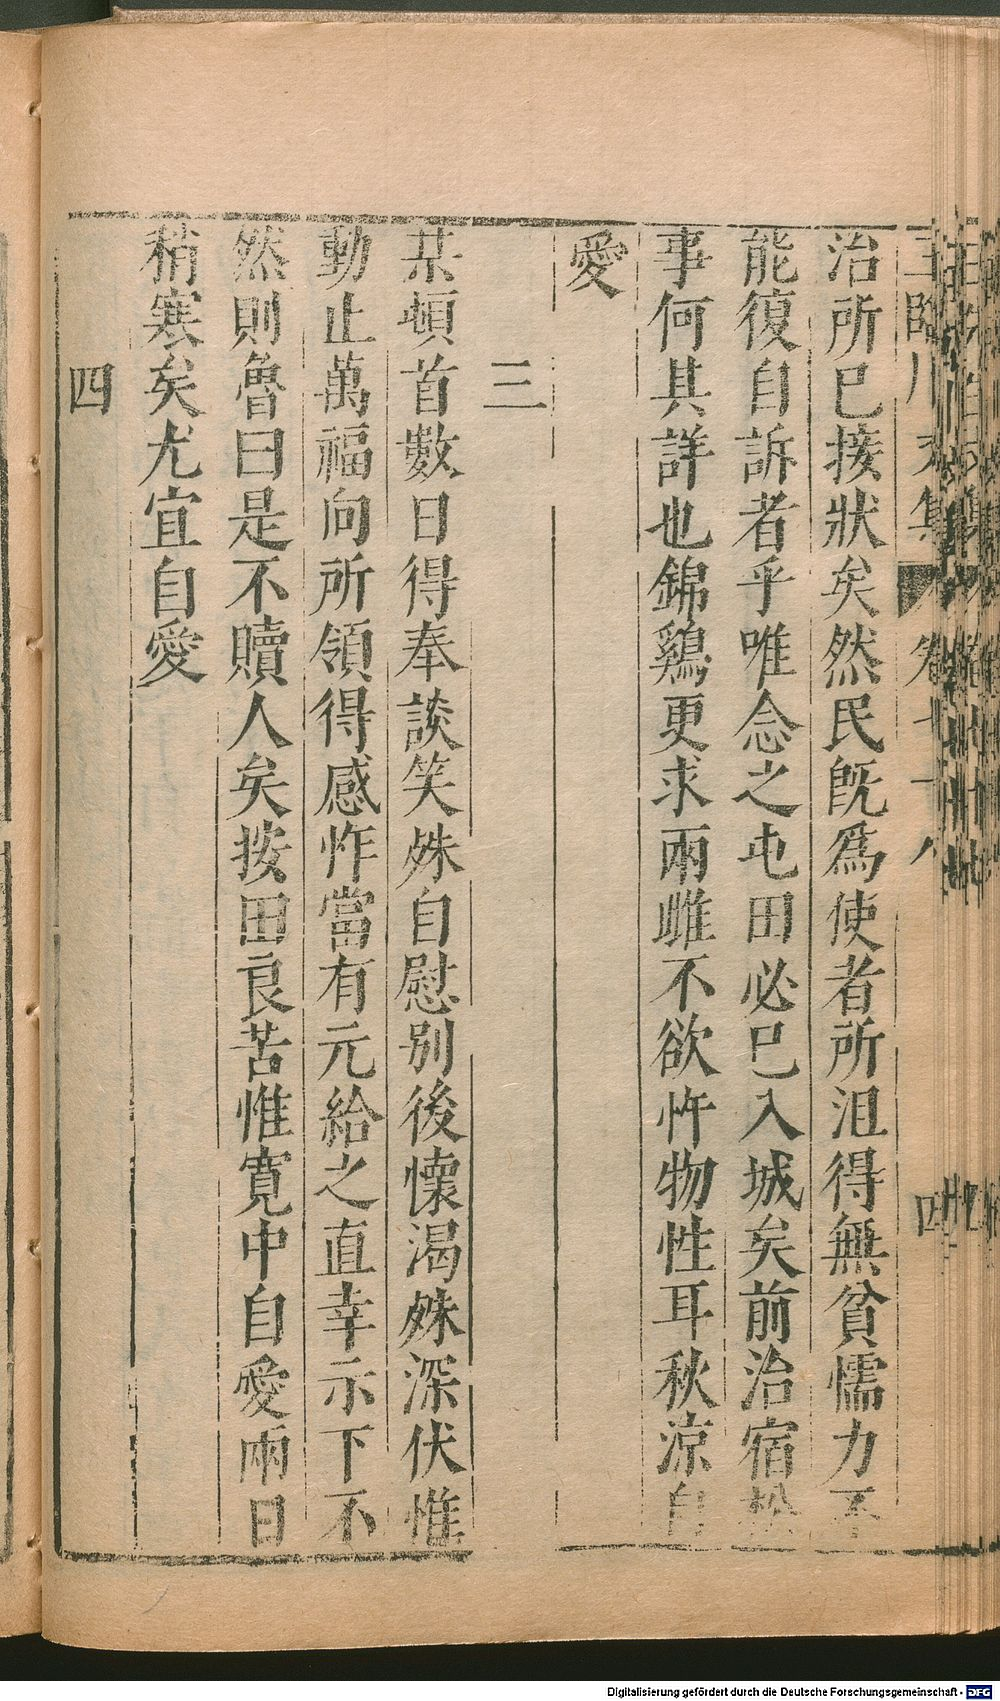 治所已接狀矣然民旣爲使者所沮得無貧懦力不
能復自訴者乎唯念之屯田必已入城矣前治宿松
事何其詳也錦鷄更求兩雌不欲忤物性耳秋涼自
愛
三
某頓首數日得奉談笑殊自慰别後懷渴殊深伏惟
動止萬福向所領得感怍當有元給之直幸示下不
然則魯曰是不贖人矣按田良苦惟寛中自愛兩日
稍寒矣尤宜自愛
四
Digitalisierung gefördert durch die Deutsche Forschungsgemeinschaft - DFG